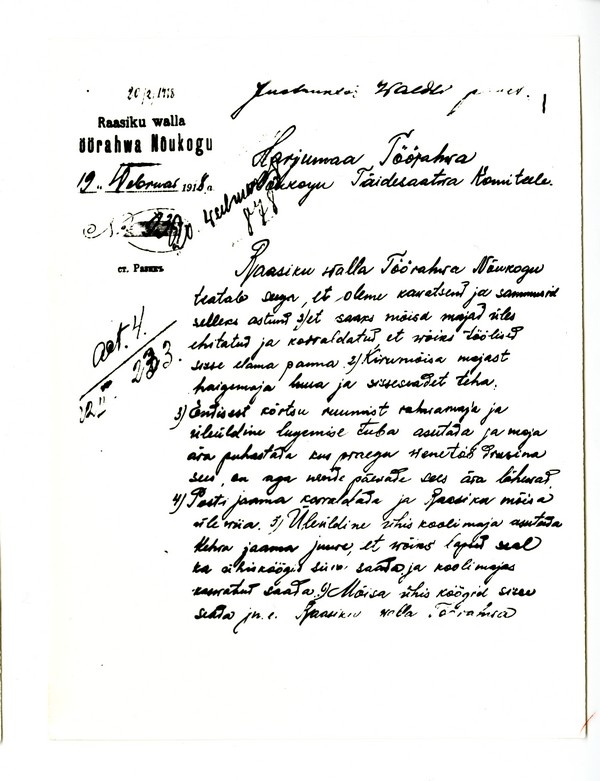 20/2, 1918
Waldu
Raasiku walla
öörahwa Nõukogu
19. Webruar 1918 a.
ст. Разикъ
Harjumaa Töörahwa
Nõukogu Täidesaatwa Komiteele.
20. weebruar
878
act. 4.
233.
Raasiku walla Töörahwa Nõukogu
teatab seega, et oleme kawatsend ja sammusid
selleks astund 1) et saaks mõisa majad üles
ehitatud ja korraldatud et wõiks töölised
sisse elama panna. 2) Kiwimõisa majast
haigemaja luua ja sisseseadet teha.
3) Endisest kõrtsu ruumist rahwamaja ja
üleüldine lugemise tuba asutada ja maja
ära puhastada kus praegu wenetöö
sees, on aga nende päewade sees ära lähewad.
4) Posti jaama korraldada ja Raasiku mõisa
üle wiia. 5) Üleüldine ühis koolimaja asutada
Kehra jaama juure, et wõiks lapsed seal
ka ühisköögid saada ja koolimajas
kaswatud saada. 6) Mõisa ühis köögid sisse
seada j.n.e. Raasiku walla Töörahwa